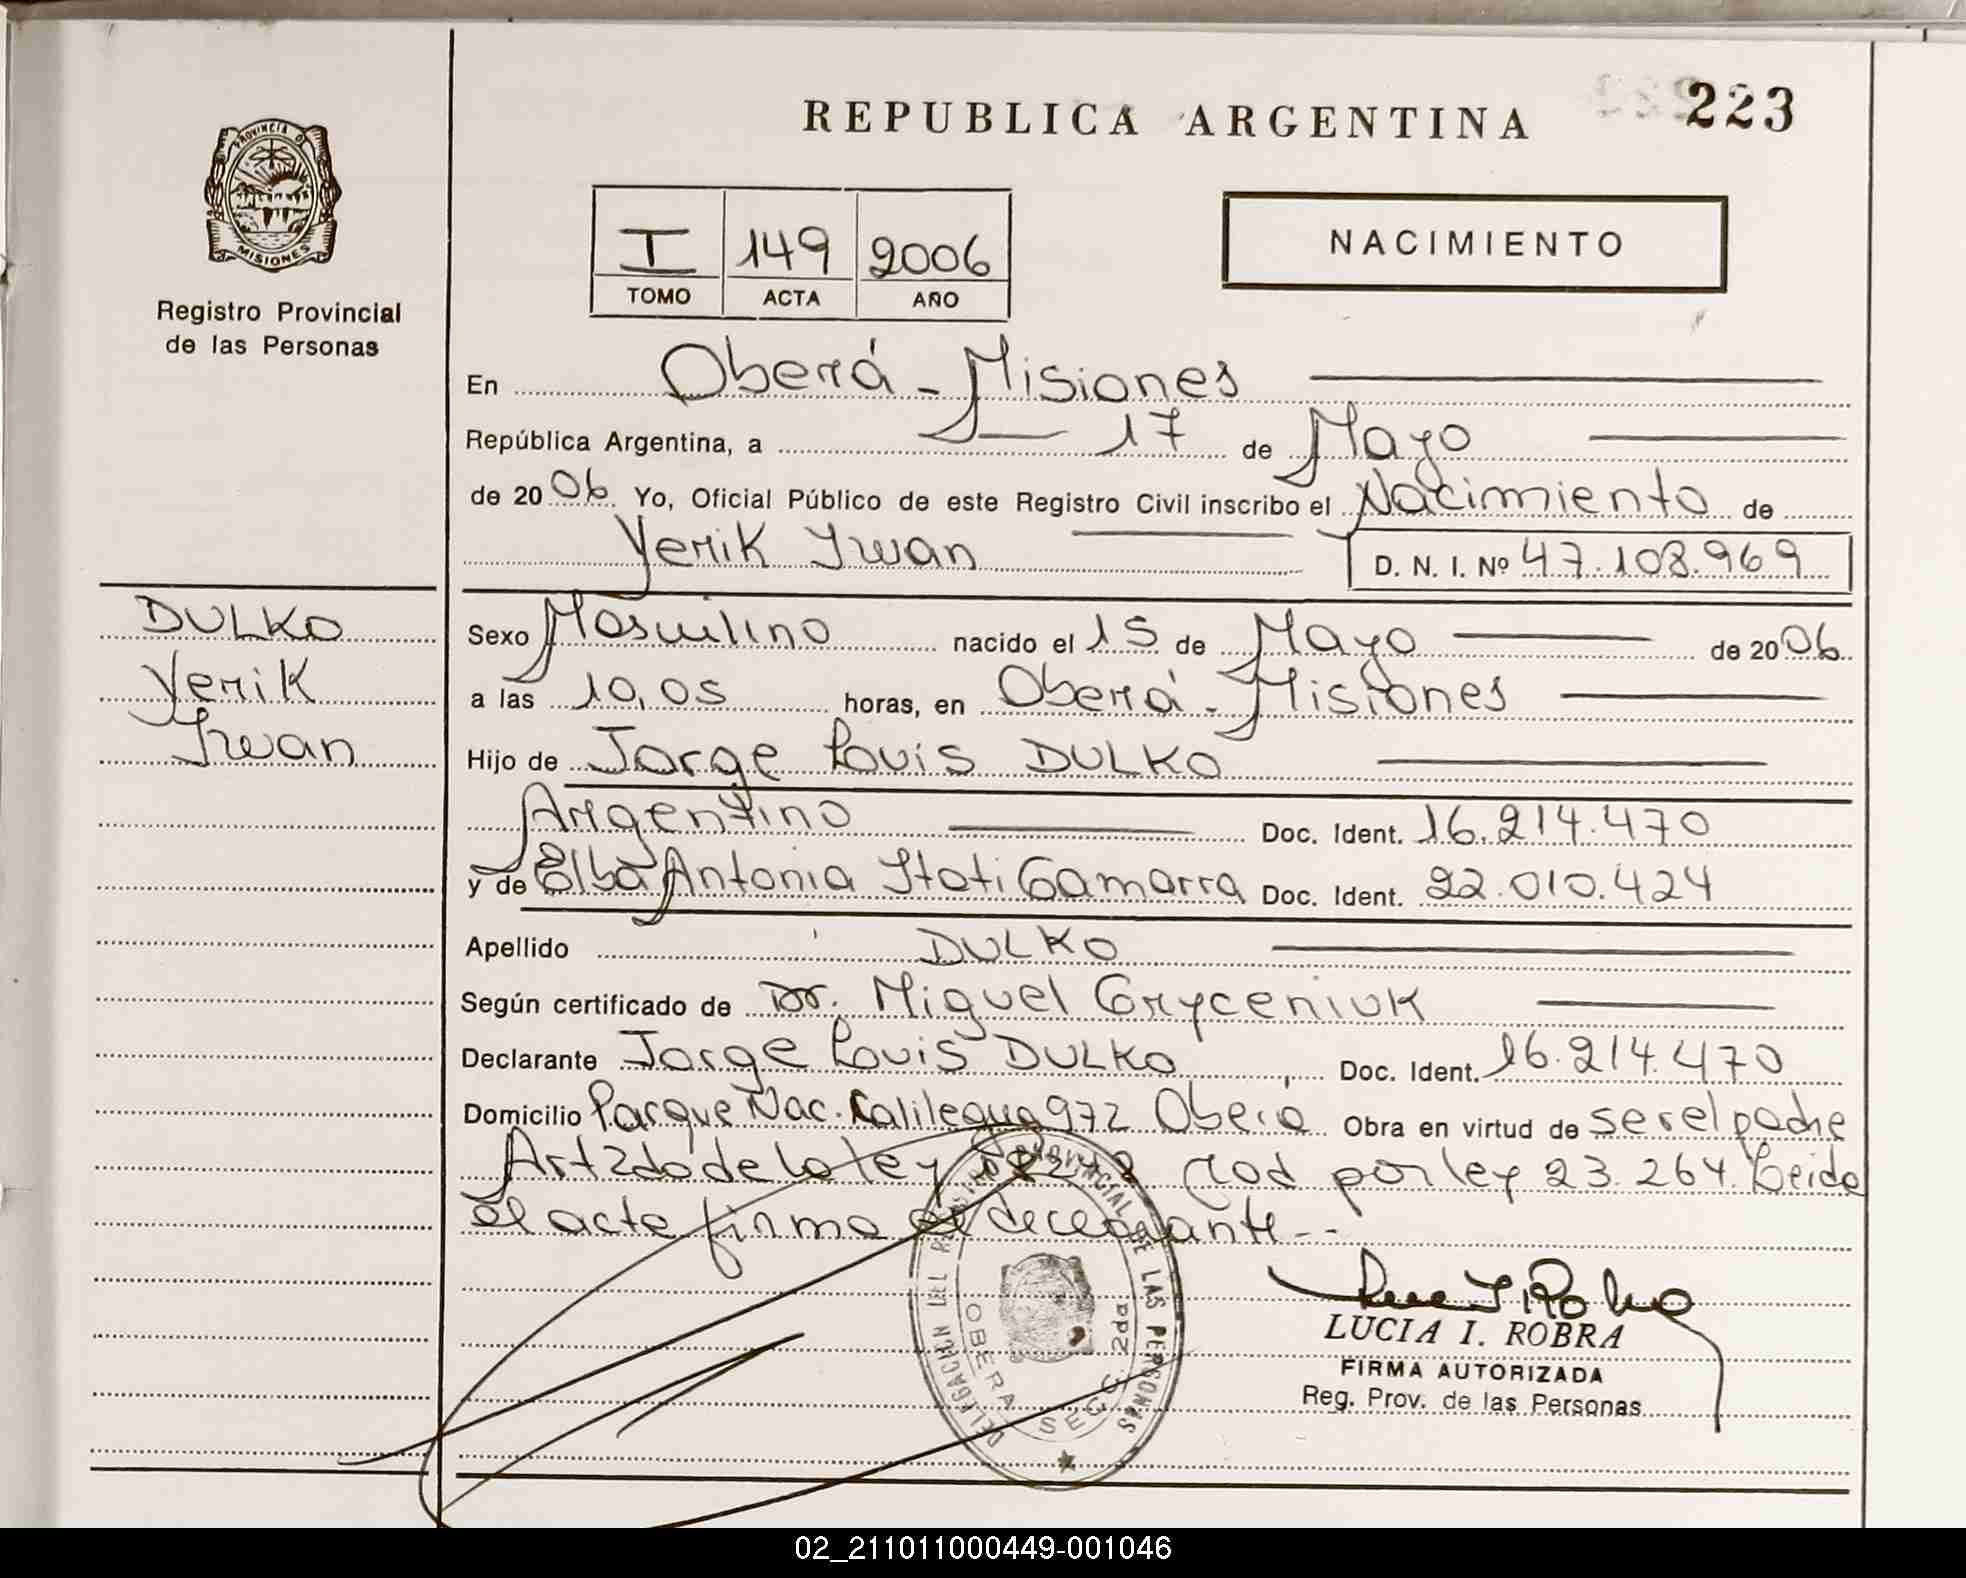 REPUBLICA ARGENTINA
223
PROVINCIA DE
MISIONES
Registro Provincial
de las Personas
I 149 2006
TOMO ACTA AÑO
NACIMIENTO
En Oberá - Misiones
República Argentina, a 17 de Mayo
de 2006 Yo, Oficial Público de este Registro Civil inscribo el Nacimiento de
Yerik Iwan D. N. I. Nº 47.108.969
DULKO
Yerik
Iwan
Sexo Masculino nacido el 15 de Mayo de 2006
a las 10,05 horas, en Oberá - Misiones
Hijo de Jorge Louis DULKO
Argentino Doc. Ident. 16.214.470
y de Elba Antonia Itati Gamarra Doc. Ident. 22.010.424
Apellido DULKO
Según certificado de Dr. Miguel Gryceniuk
Declarante Jorge Louis DULKO, Doc. Ident. 16.214.470
Domicilio Parque Nac. Calilegua 972 Oberá Obra en virtud de ser el padre
Art 2do de la ley por ley 23.264. Leida
el acta firma el declarante --
DELEGACION DEL REGISTRO PROVINCIAL DE LAS PERSONAS
OBERA SECC. 2da
LUCIA I. ROBRA
FIRMA AUTORIZADA
Reg. Prov. de las Personas
02_211011000449-001046